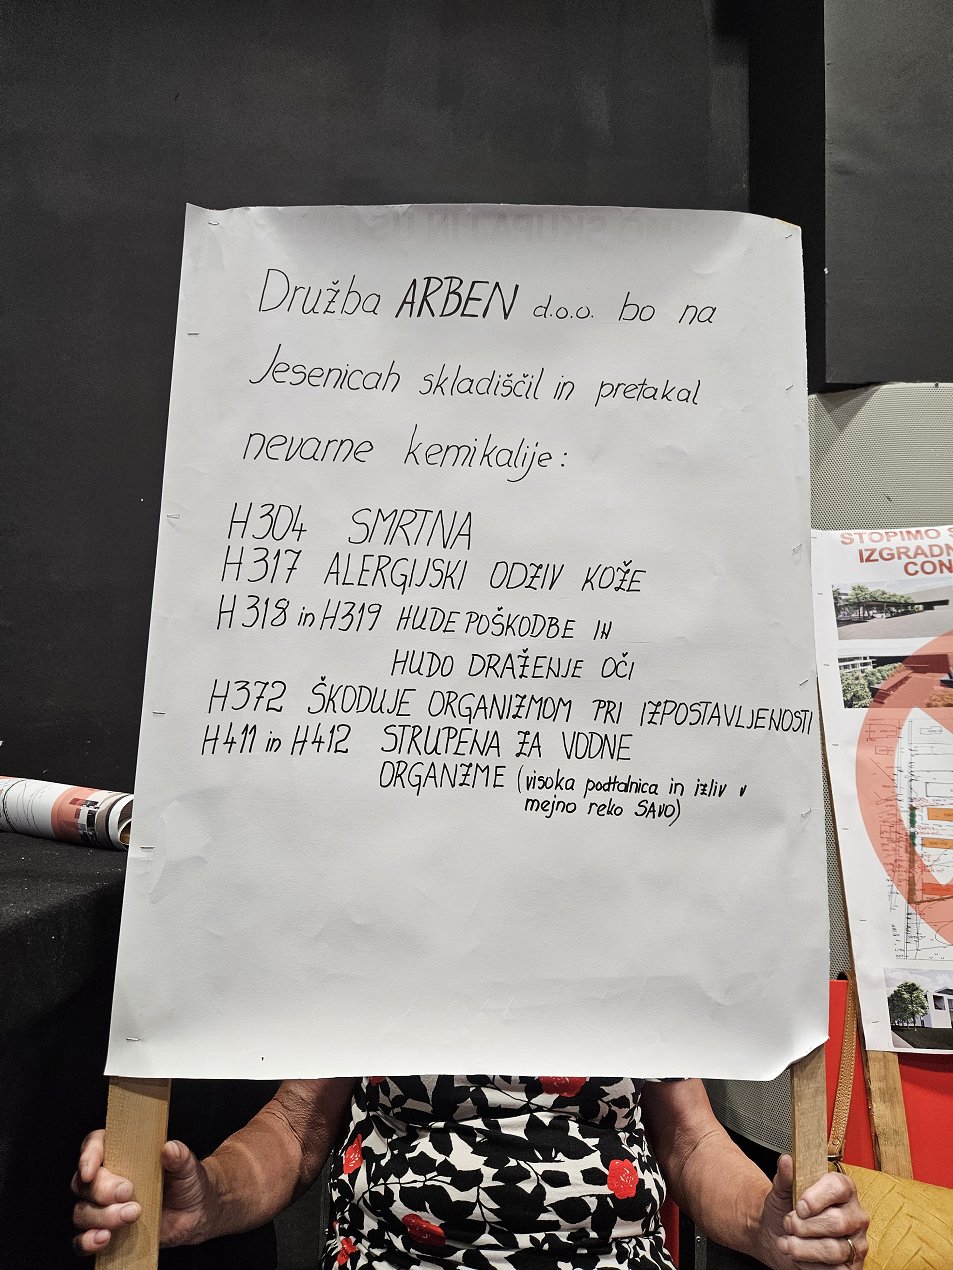 Družba ARBEN d.o.o. bo na
Jesenicah skladiščil in pretakal
nevarne kemikalije:
H304 SMRTNA
H317 ALERGIJSKI ODZIV KOŽE
H318 in H319 HUDE POŠKODBE IN
HUDO DRAŽENJE OČI
H372 ŠKODUJE ORGANIZMOM PRI IZPOSTAVLJENOSTI
H411 in H412 STRUPENA ZA VODNE
ORGANIZME (visoka podtalnica in izliv v
mejno reko SAVO)
STOPIMO
IZGRADN
CON